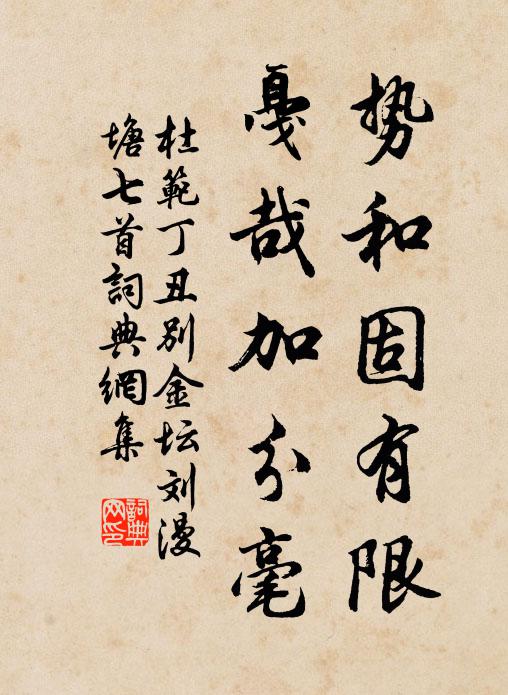 势和固有限
戛哉加分毫
杜範丁丑别金坛刘漫
塘七首詞典網集
詞典
网印